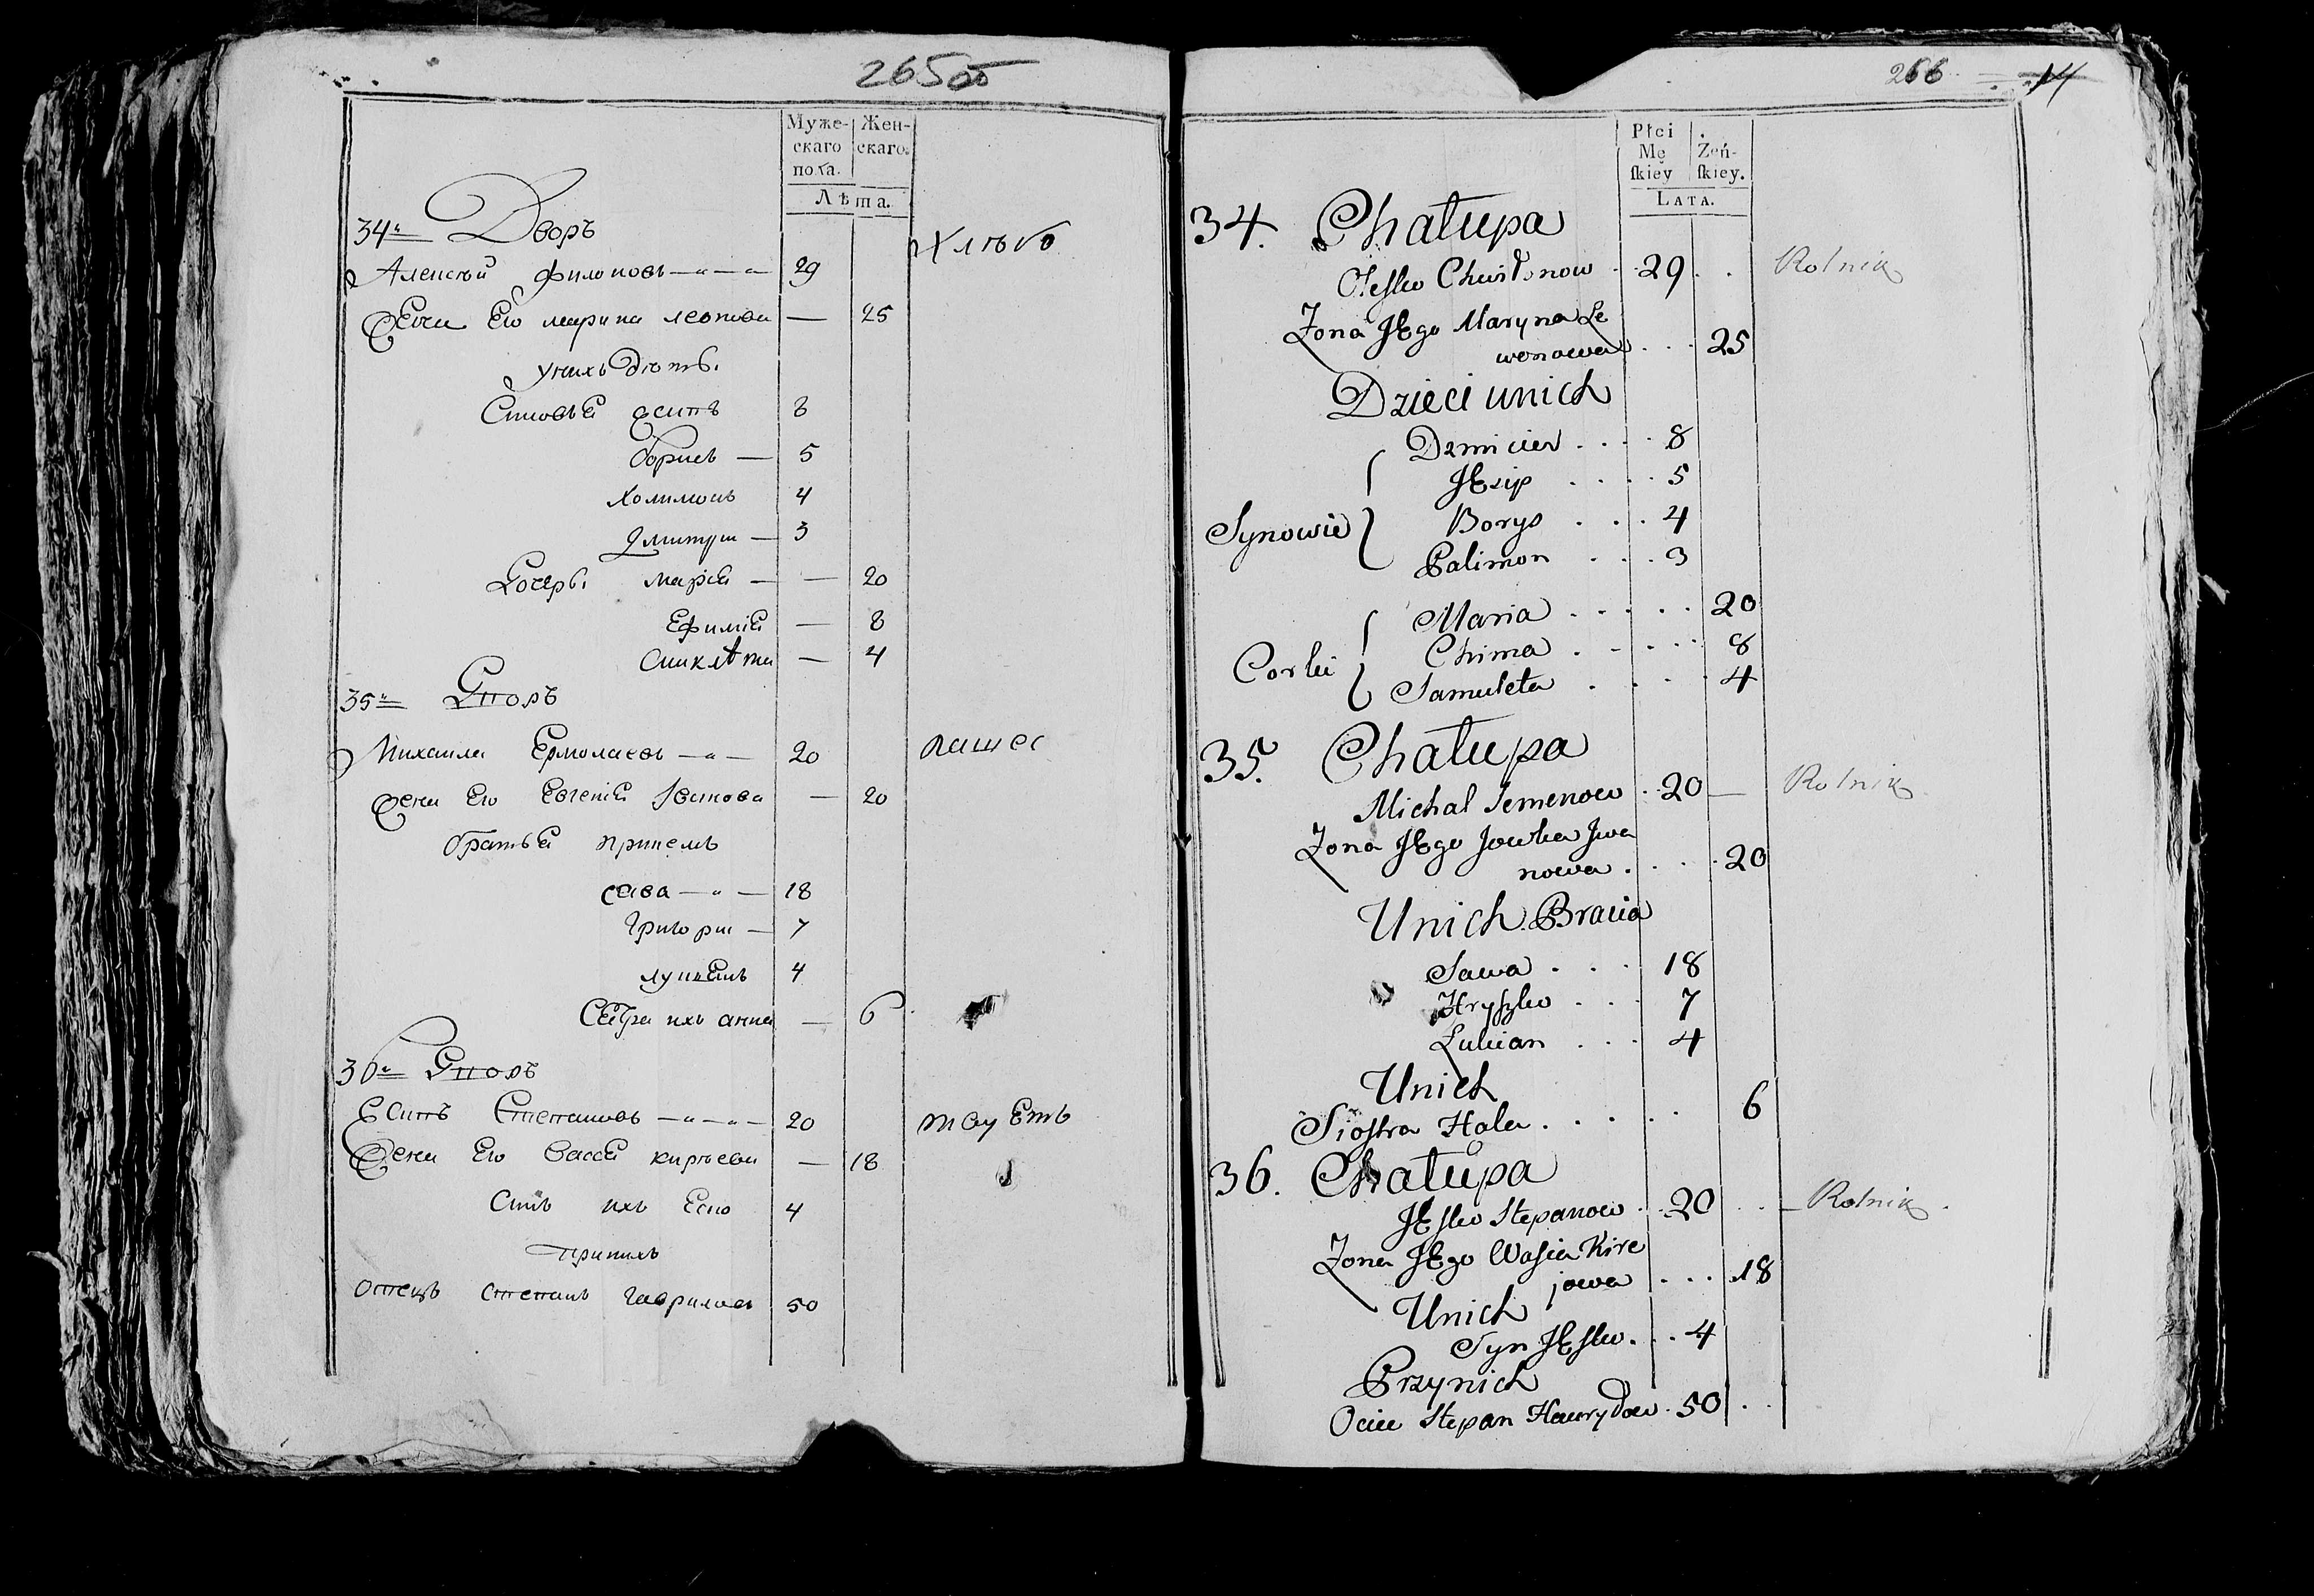 265об
Муже-
скаго
пола.
Жен-
скаго.
Лѣта.
34й Дворъ
Алексѣй Филоновъ — 29
Жена Его марина леонова — 25
Хлѣбо
у нихъ дѣти
Сыновья осипъ 8
борисъ — 5
Халимонъ 4
Дмитри — 3
Дочери мария — 20
Ефимия — 8
4
35й Дворъ
Михаила Ермолаевъ — 20
пашес
Жена Его Евгения Иванова — 20
братья при немъ
сава — 18
Григори — 7
лукьянъ 4
Сестра ихъ анна — 6
36й Дворъ
Есипъ Степановъ — 20
тауетъ
Жена Его Васса киреева — 18
Сынъ ихъ Есио 4
при нихъ
отецъ степанъ Гавриловъ 50
266 14
Płci
Mę
ſkiey
Żeń-
ſkiey.
LATA.
34. Chałupa
Oleſko 29 Rolnik
Żona JEgo Maryna Le
wonowa 25
Dzieci unich
Dzmicier 8
JEzip 5
Synowie Borys 4
Palimon 3
Maria 20
Corki Chima 8
Samuleta 4
35. Chałupa
Michał Jemenow 20 — Rolnik
Żona JEgo Jowka Jwa
nowa 20
Unich Bracia
Sawa 18
Hryſzko 7
Łukian 4
Unich
Sioſtra Hala 6
36. Chałupa
JEſko Stepanow 20 Rolnik
Żona JEgo Waſia Kire
jowa 18
Unich
Syn JEſko 4
Przynich
Ociec Stepan Hawryłow 50